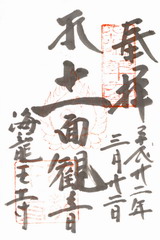 奉拝
平成廿二年
三月十二日
十一面観音
海龍王寺